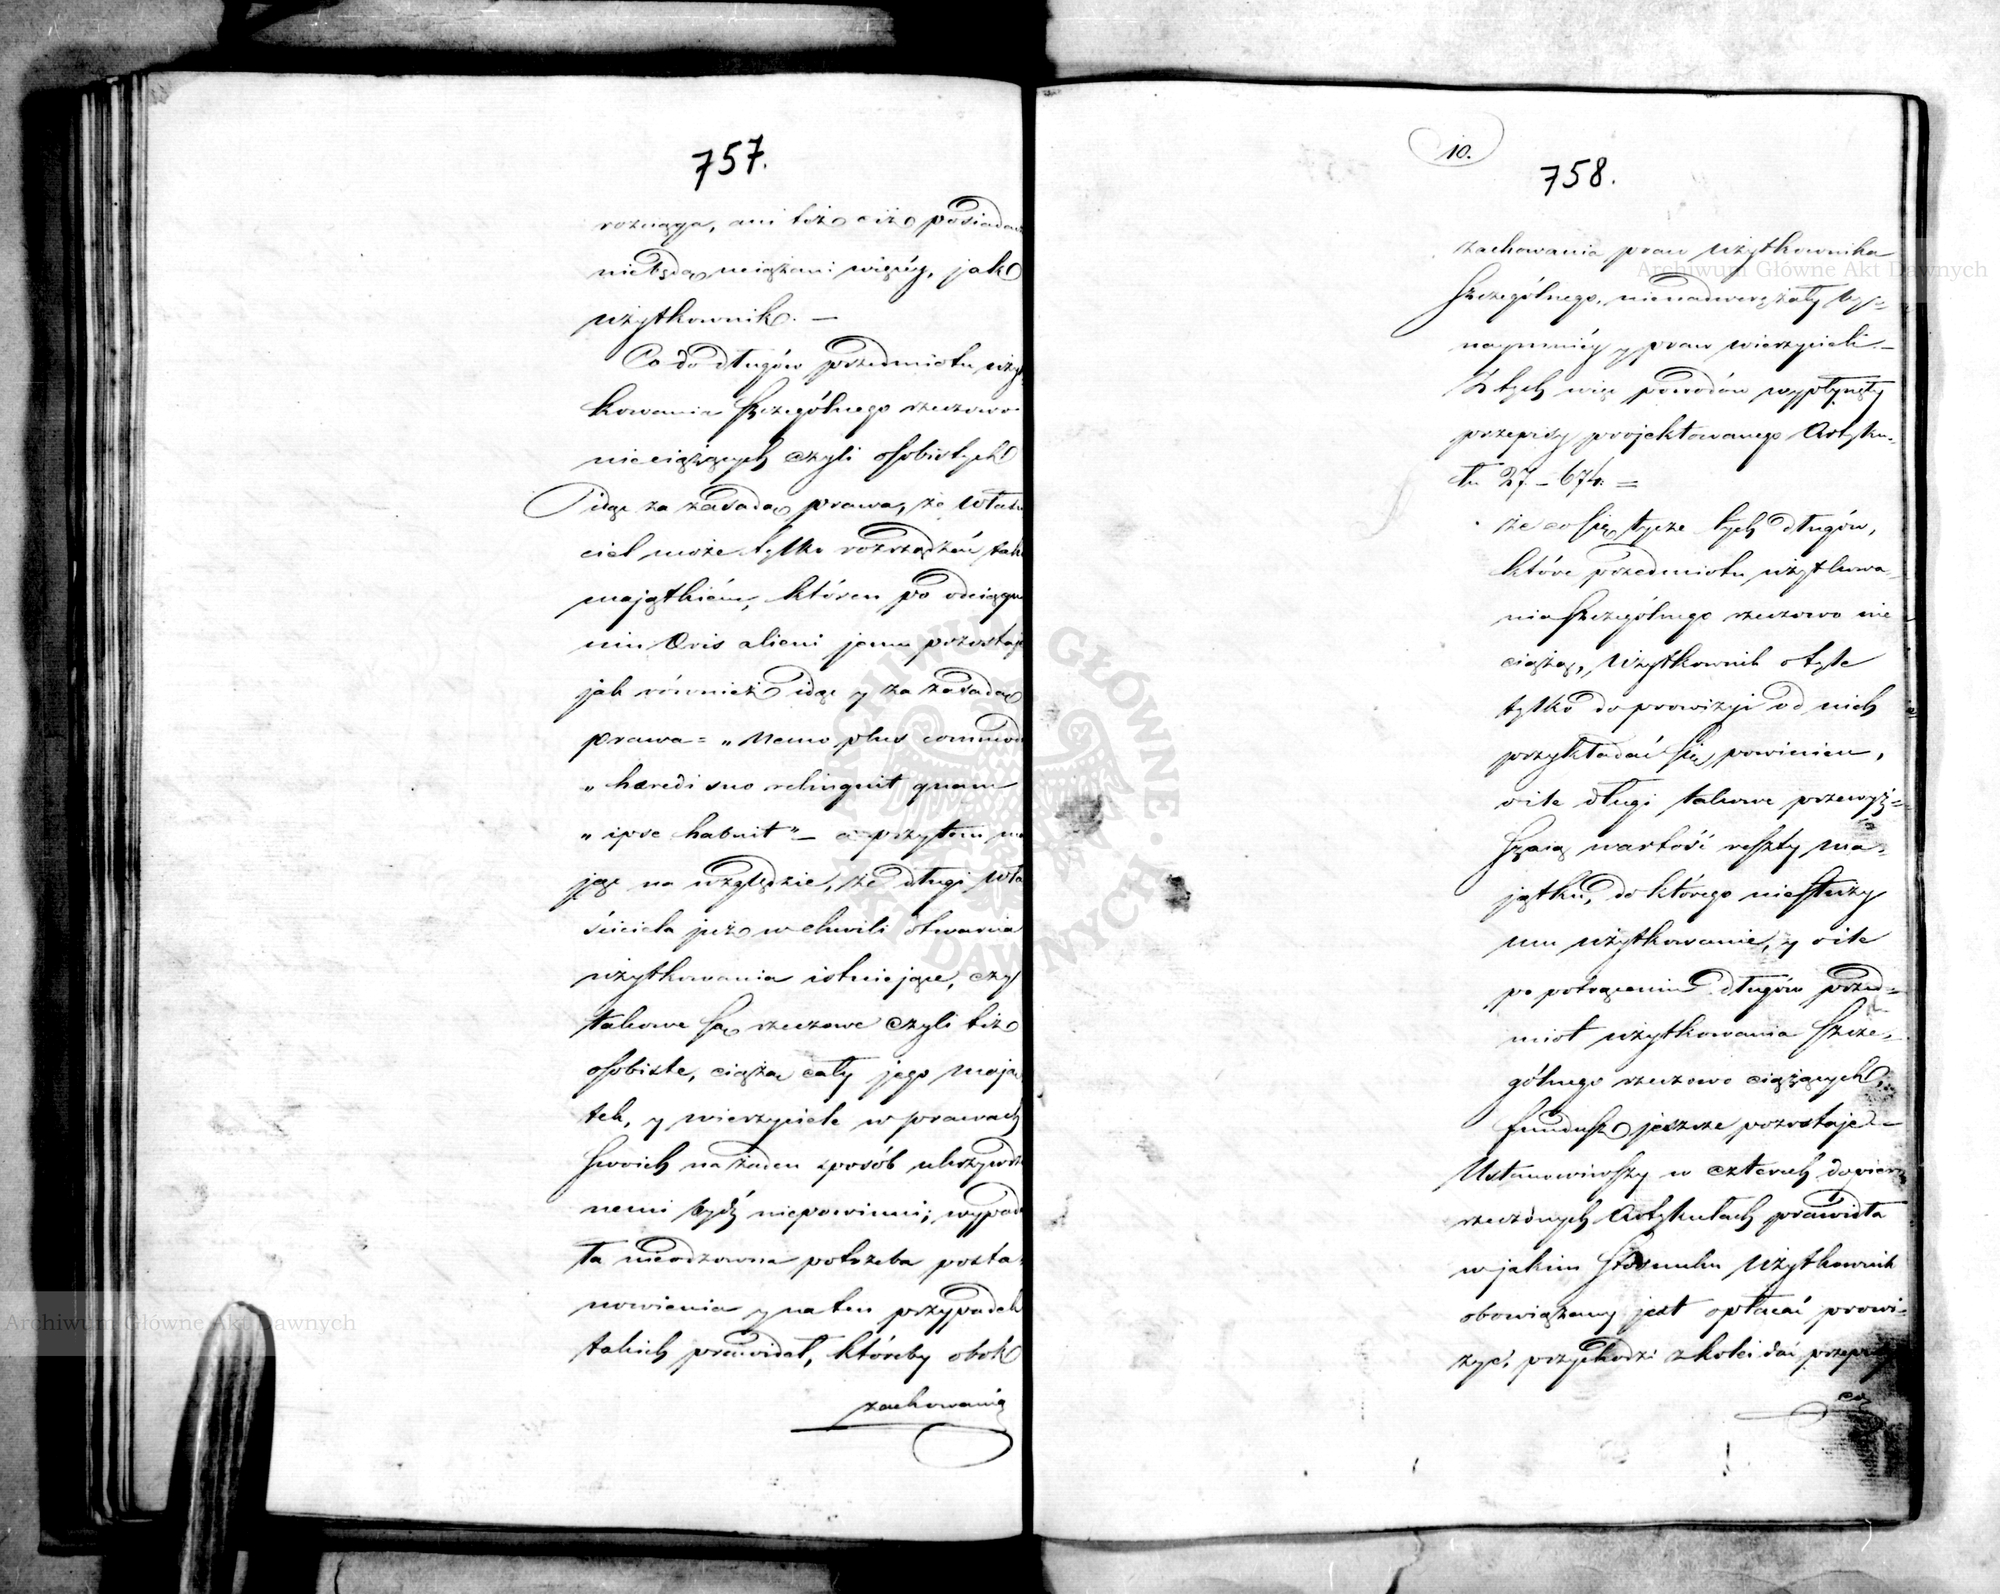 757.
rozciąga, ani też ciż posiadacze
niebędą uciążani więcéy, jak
użytkownik. —
Co do długów przedmiotu użyt
kowania szczególnego rzeczowo
nieciążących czyli osobistych
idąc za zasadą prawa, że właści
ciel może tylko rozrządzać tak
majątkiém, któren po odciągnie
niu aeris alieni jemu pozostaje
jak również idąc y za zasadą
prawa = „Nemo plus commodi
„haeredi suo relinquit quam
„ipse habuit" — a przytem ma
jąc na względzie, że długi wła
ściciela już w chwili otwarcia
użytkowania istniejące, czy
takowe są rzeczowe czyli też
osobiste, ciążą cały jego mają
tek, y wierzyciele w prawach
swoich na żaden sposób ukrzywdze
nemi bydź niepowinni; wypad
ła nieodzowna potrzeba posta
nowienia y na ten przypadek
takich prawideł, któreby obok
zachowania
10.
758.
zachowania praw użytkownika
szczególnego, nienadwerężały by=
naymniéy y praw wierzycieli. —
Z tych więc powodów wypłynęły
przepisy projektowanego Artyku=
łu 27. — 674. =
że co się tycze tych długów,
które przedmiotu użytkowa=
nia szczególnego rzeczowo nie
ciążą, Użytkownik o tyle
tylko do prowizyi od nich
przykładać się powinien,
o ile długi takowe przewyż=
szaią wartość reszty ma=
jątku, do którego niesłuży
mu użytkowanie, y o ile
po potrąceniu długów przed=
miot użytkowania szcze=
gólnego rzeczowo ciążących,
fundusz jeszcze pozostaje —
Ustanowiwszy w czterech dopiero
rzeczonych Artykułach prawidła
w jakim stosunku Użytkownik
obowiązany jest opłacać prowi=
zye, przychodzi z kolei dać przepisy
co
Archiwum Główne Akt Dawnych
Archiwum Główne Akt Dawnych
ARCHIWUM GŁÓWNE AKT DAWNYCH